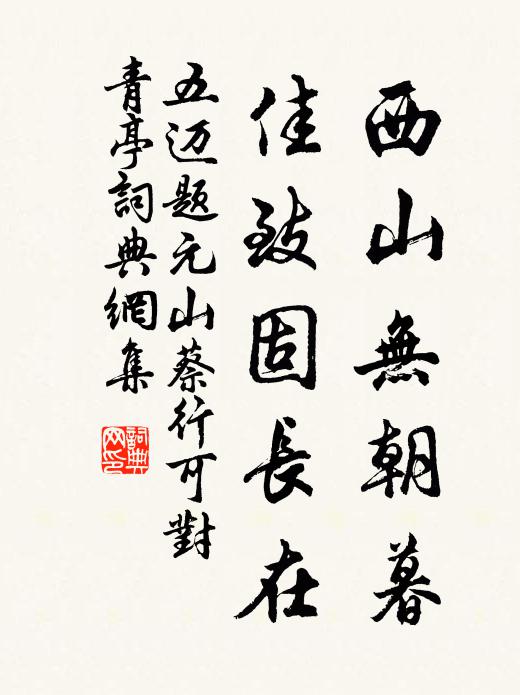 西山無朝暮
佳致固長在
五迈题元山蔡行可對
青亭詞典網集
詞典
网印